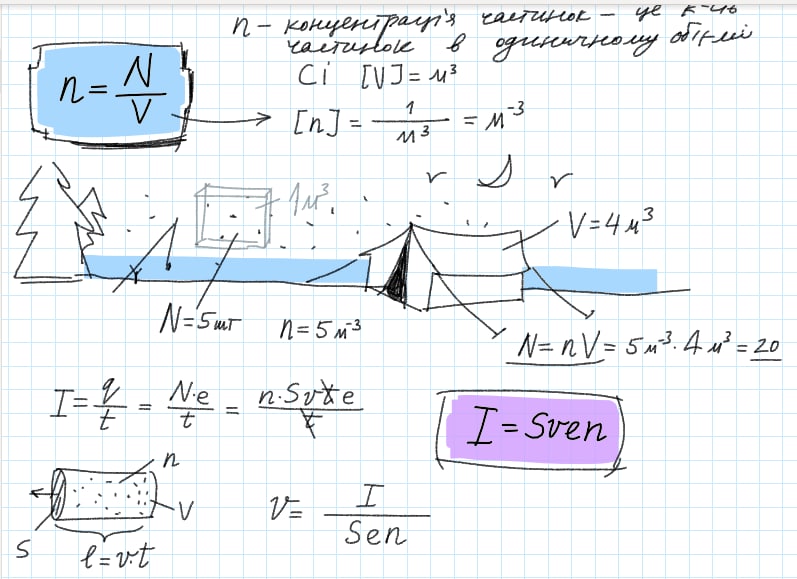 n – концентрація частинок – це к-ть
частинок в одиничному об'ємі
n = N/V
Сі [V] = м³
[n] = 1/м³ = м⁻³
1м³
V = 4м³
N = 5шт
n = 5м⁻³
N = nV = 5м⁻³·4м³ = 20
I = q/t = N·e/t = n·Svte/t
I = Sven
n
V
S
l = v·t
v = I/Sen